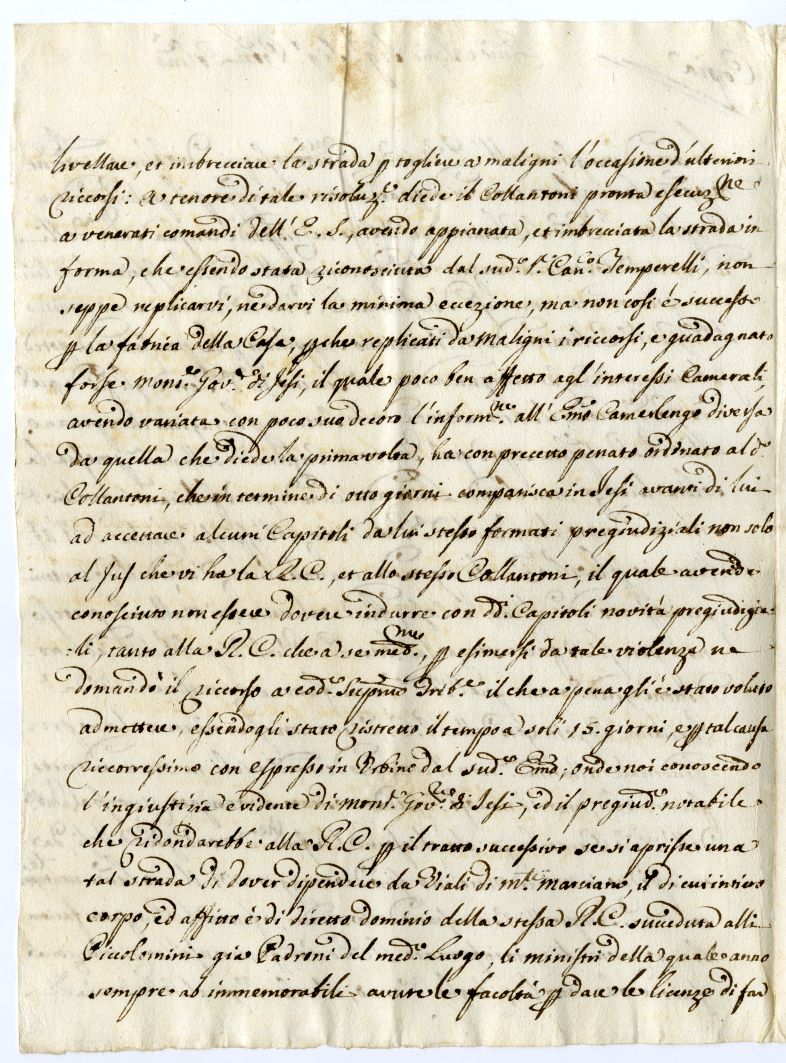 livellare, et imbrecciare la strada p togliere a maligni l'occasione d'ulteriori
riccorsi: A tenore di tale risoluz.e diede il Collantoni pronta esecuz.ne
a venerati comandi dell'E. S., avendo appianata, et imbrecciata la strada in
forma, che essendo stata riconosciuta dal sud.o S.r Can.co Temperelli, non
seppe replicarvi, ne darvi la minima eccezione, ma non così é successo
p la fabrica della Casa, p che replicati da Maligni i riccorsi, e guadagnato
forse Mons.r Gov.re di Jesi, il quale poco ben affetto agl'interessi Camerali,
avendo variata con poco suo decoro l'inform.ne all'Emo Camerlengo diversa
da quella che diede la prima volta, ha con precetto penato ordinato al d.o
Collantoni, che in termine di otto giorni comparisca in Jesi avanti di lui
ad accettare alcuni Capitoli da lui stesso formati pregiudiziali non solo
al Jus che vi ha la R. C., et allo stesso Collantoni, il quale avendo
conosciuto non essere dovere indurre con dd.i Capitoli novità pregiudizia=
=li, tanto alla R. C. che a se med.mo, p esimersi da tale violenza ne
domandò il riccorso a cod.o Supremo Trib.e il che a pena gli é stato voluto
admettere, essendogli stato ristretto il tempo a soli 15. giorni, e p tal causa
riccorressimo con espresso in Urbino dal sud.o Emo; onde noi conoscendo
l'ingiustizia evidente di Mons.r Gov.re di Jesi, ed il pregiud.o notabile
che ridondarebbe alla R. C. p il tratto successivo se si aprisse una
tal strada di dover dipendere da Viali di M.te Marciano, il di cui intiero
corpo, ed affitto é di diretto dominio della stessa R. C. succeduta alli
Piccolomini già Padroni del med.o Luogo, li ministri della quale anno
sempre ab immemorabili avute le facoltà p dare le licenze di far